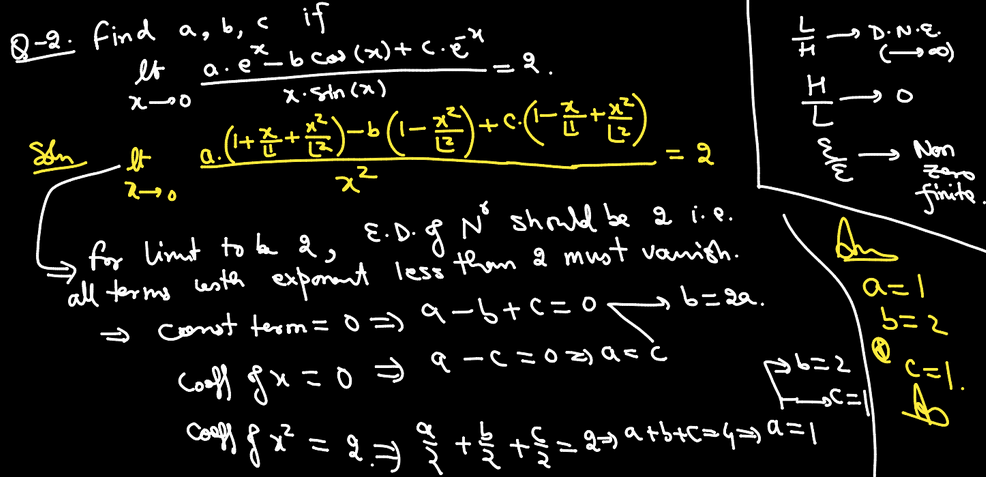 Q-2. Find a, b, c if
lt x→0 (a.e^x - b cos(x) + c.e^-x) / (x.sin(x)) = 2.
Soln lt x→0 (a.(1 + x/⌊1 + x²/⌊2) - b(1 - x²/⌊2) + c.(1 - x/⌊1 + x²/⌊2)) / x² = 2
⇒ for limit to be 2, E.D. of Nʳ should be 2 i.e.
all terms with exponent less than 2 must vanish.
⇒ const term = 0 ⇒ a - b + c = 0 → b = 2a.
coeff of x = 0 ⇒ a - c = 0 ⇒ a = c
coeff of x² = 2. ⇒ a/2 + b/2 + c/2 = 2 ⇒ a+b+c=4 ⇒ a=1
→ b=2
→ c=1
L/H → D.N.E. (→∞)
H/L → 0
ε/ε → Non zero finite.
Ans
a=1
b=2
c=1.